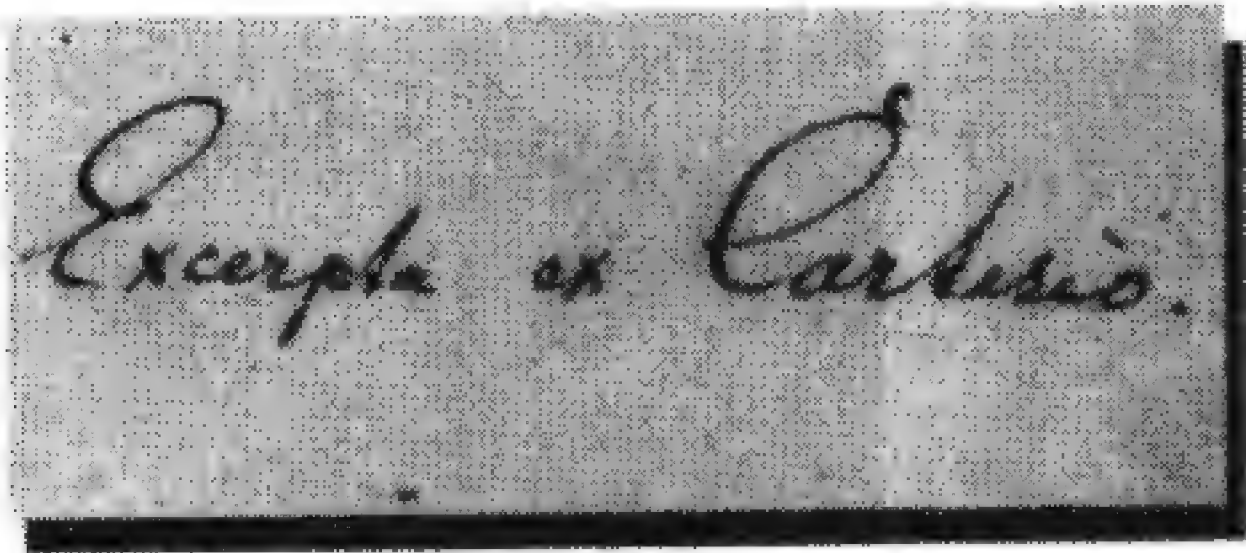 Excerpta ex Cartesio.